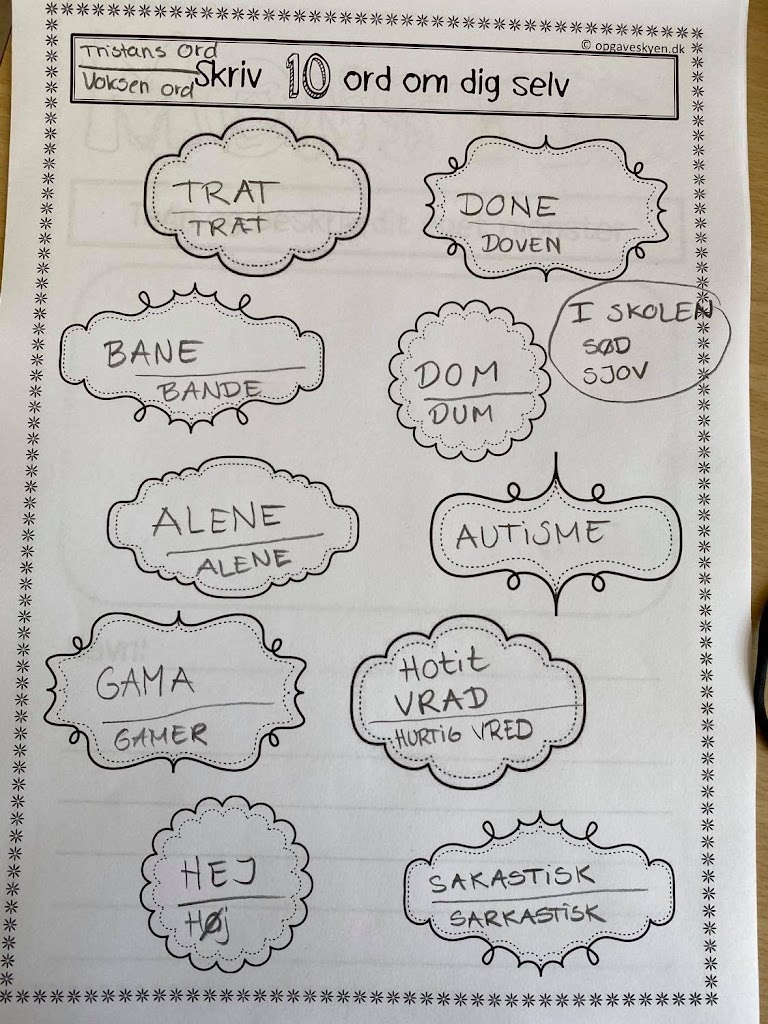 © opgaveskyen.dk
Tristans ord
Voksen ord
Skriv 10 ord om dig selv
TRAT
TRÆT
DONE
DOVEN
BANE
BANDE
DOM
DUM
I SKOLEN
SØD
SJOV
ALENE
ALENE
AUTISME
GAMA
GAMER
Hotit
VRAD
HURTIG VRED
HEJ
Høj
SAKASTISK
SARKASTISK